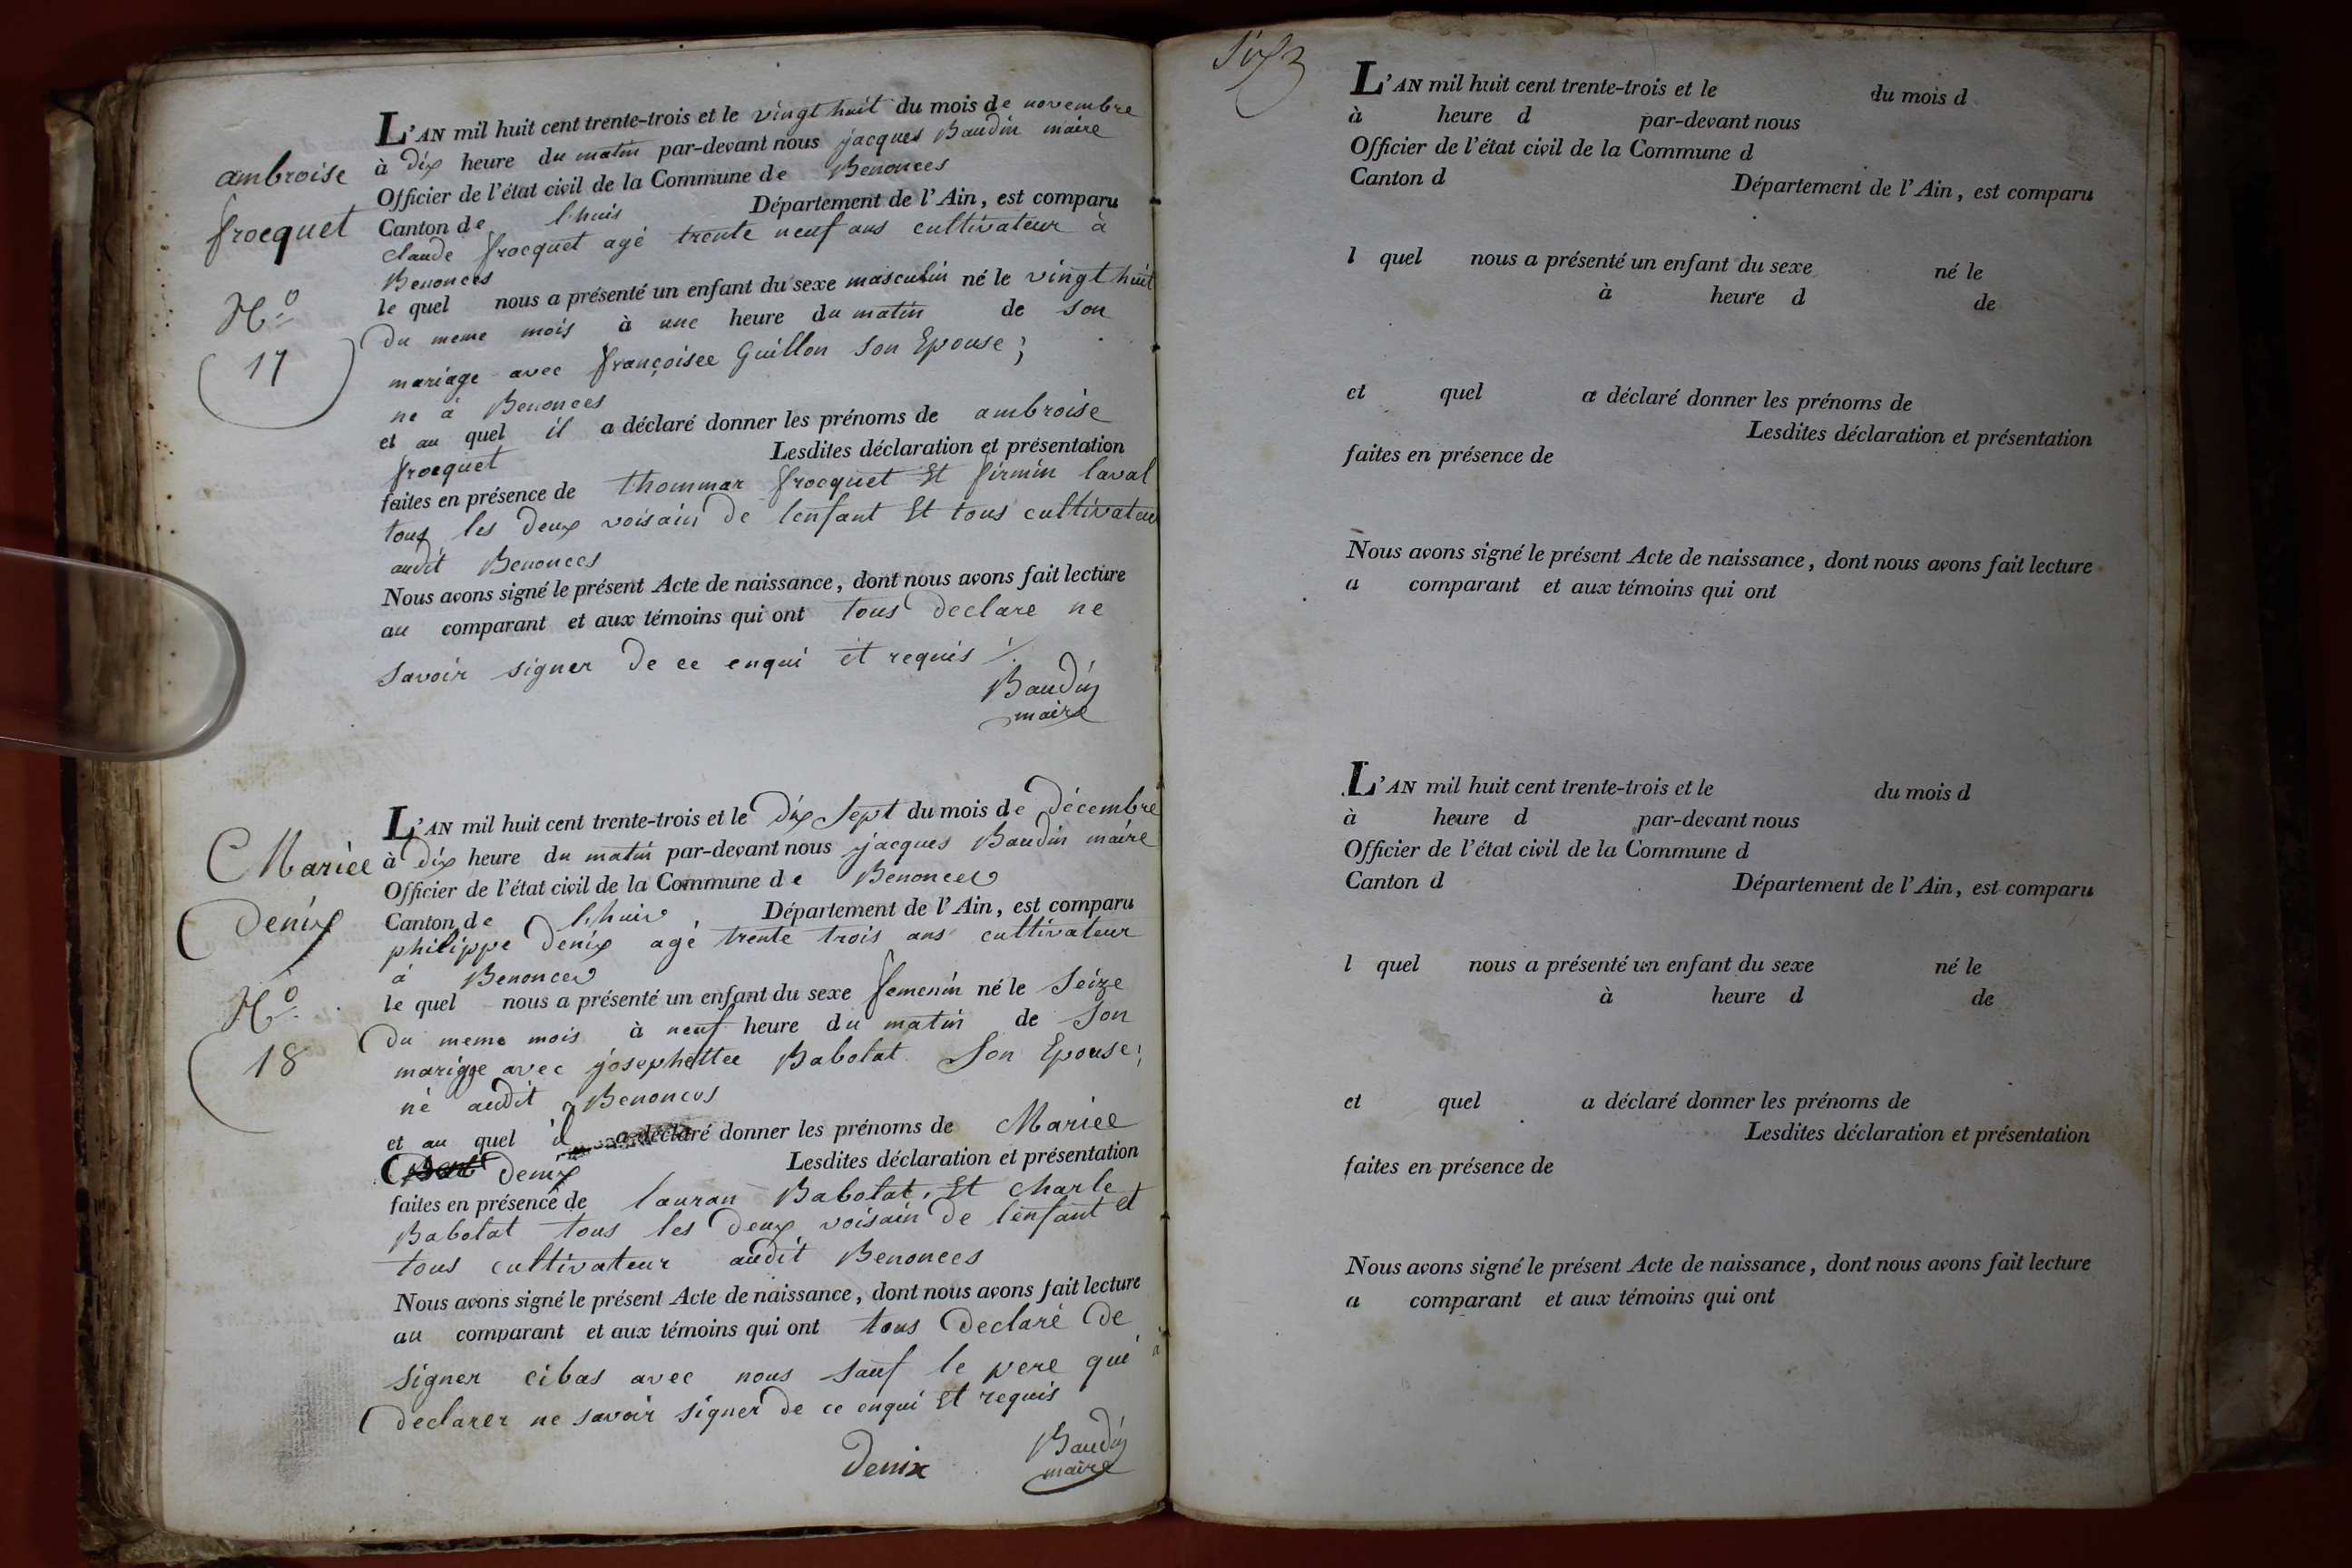 ambroise
frocquet
No
17
L'AN mil huit cent trente-trois et le vingt huit du mois de novembre
à dix heure du matin par-devant nous jacques Baudin maire
Officier de l'état civil de la Commune de Benonces
Canton de lhuis Département de l'Ain, est comparu
claude frocquet agé trente neuf ans cultivateur à
Benonces
le quel nous a présenté un enfant du sexe masculin né le vingt huit
du meme mois à une heure du matin de son
mariage avec françoisee Guillon son Epouse;
ne à Benonces
et au quel il a déclaré donner les prénoms de ambroise
frocquet Lesdites déclaration et présentation
faites en présence de thommar frocquet Et firmin laval
tous les deux voisain de lenfant Et tous cultivateur
audit Benonces
Nous avons signé le présent Acte de naissance, dont nous avons fait lecture
au comparant et aux témoins qui ont tous declare ne
savoir signer de ce enqui et requis
Baudin
maire
Mariee
Denix
No
18
L'AN mil huit cent trente-trois et le Dix Sept du mois de Décembre
à Dix heure du matin par-devant nous jacques Baudin maire
Officier de l'état civil de la Commune de Benonces
Canton de lhuis Département de l'Ain, est comparu
philippe Denix agé trente trois ans cultivateur
à Benonces
le quel nous a présenté un enfant du sexe femenin né le Seize
du meme mois à neuf heure du matin de Son
marigge avec josephettee Babolat Son Epouse;
né audit Benonces
et au quel il a déclaré donner les prénoms de Mariee
Denix Lesdites déclaration et présentation
faites en présence de lauran Babolat, Et charle
Babolat tous les deux voisain de lenfant et
tous cultivateur audit Benonces
Nous avons signé le présent Acte de naissance, dont nous avons fait lecture
au comparant et aux témoins qui ont tous Declaré De
signer cibas avec nous sauf le pere qui à
Declarer ne savoir signer de ce enqui Et requis
Denix Baudin
maire
L'AN mil huit cent trente-trois et le du mois d
à heure d par-devant nous
Officier de l'état civil de la Commune d
Canton d Département de l'Ain, est comparu
l quel nous a présenté un enfant du sexe né le
à heure d de
et quel a déclaré donner les prénoms de
Lesdites déclaration et présentation
faites en présence de
Nous avons signé le présent Acte de naissance, dont nous avons fait lecture
a comparant et aux témoins qui ont
L'AN mil huit cent trente-trois et le du mois d
à heure d par-devant nous
Officier de l'état civil de la Commune d
Canton d Département de l'Ain, est comparu
l quel nous a présenté un enfant du sexe né le
à heure d de
et quel a déclaré donner les prénoms de
Lesdites déclaration et présentation
faites en présence de
Nous avons signé le présent Acte de naissance, dont nous avons fait lecture
a comparant et aux témoins qui ont